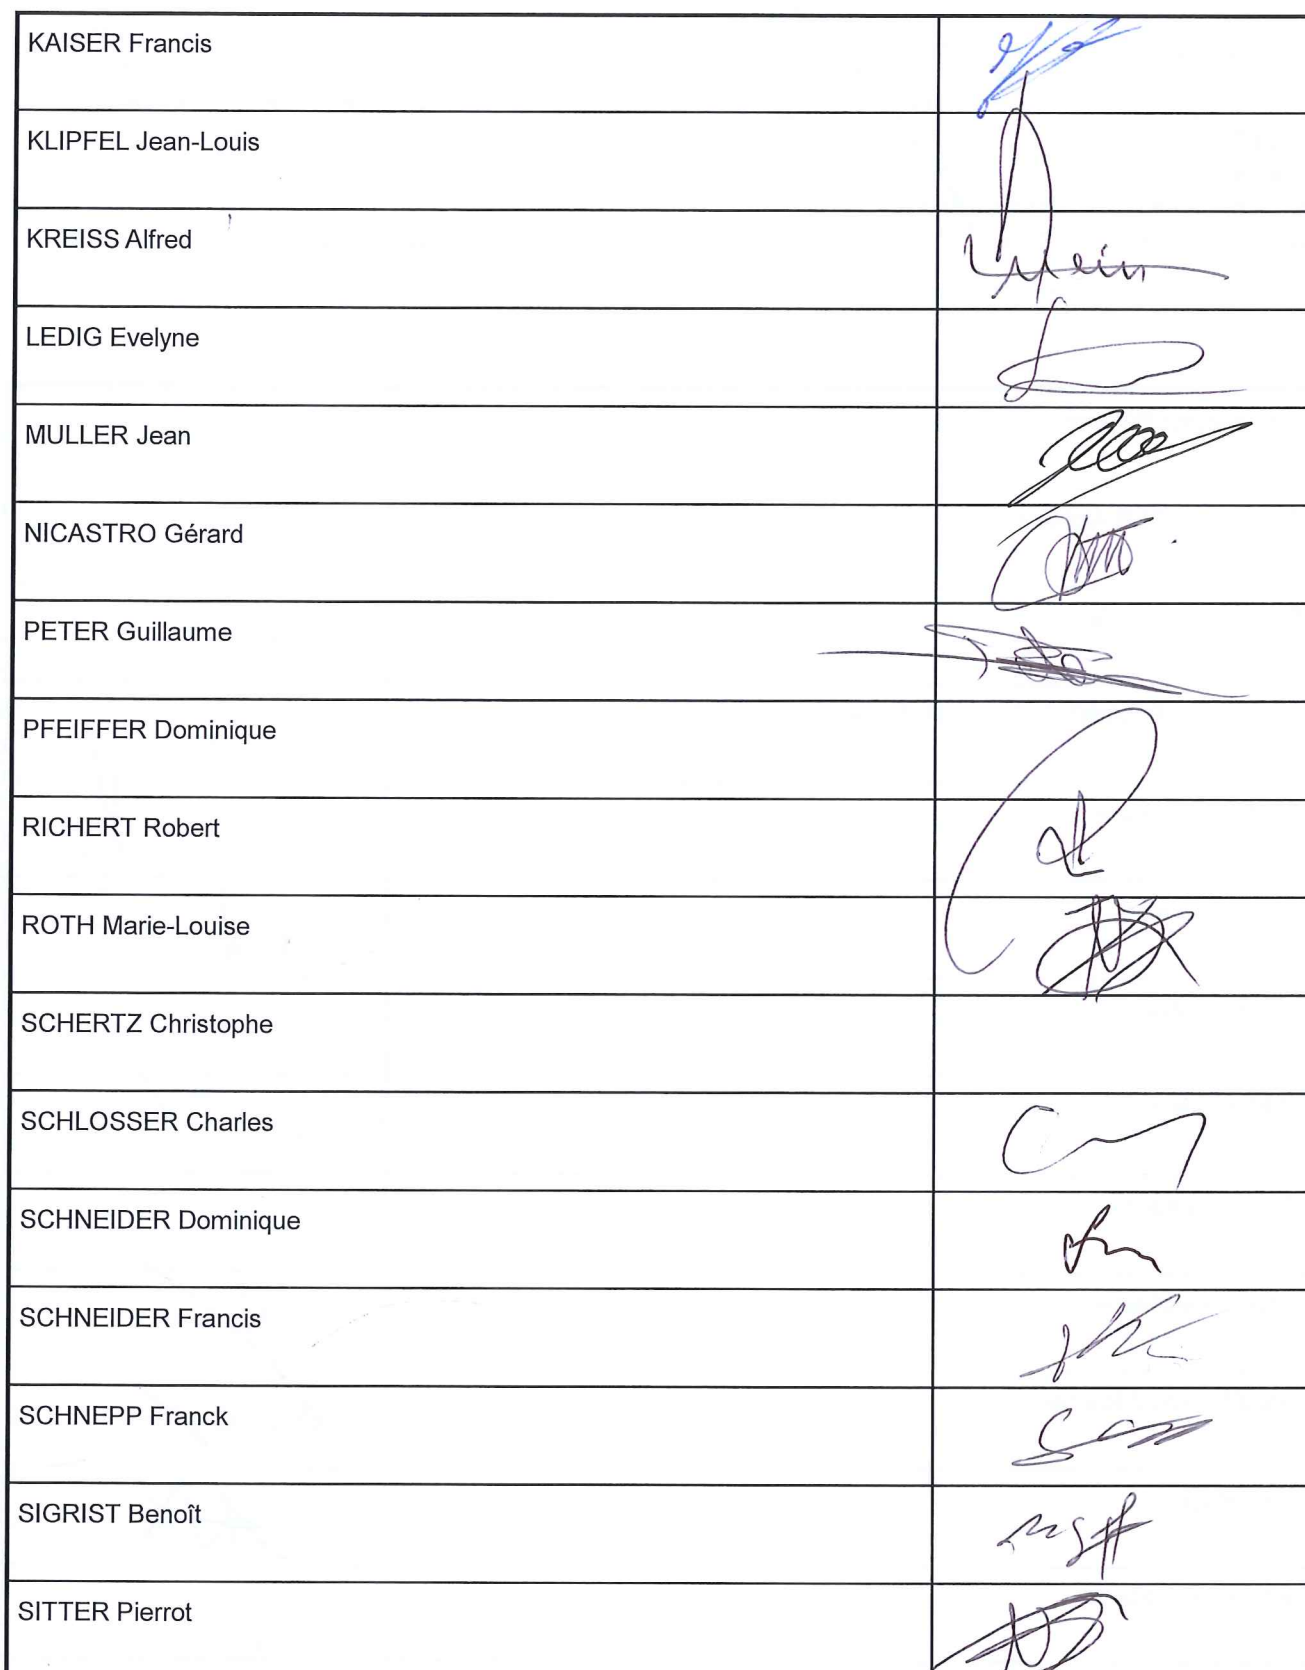 KAISER Francis
KLIPFEL Jean-Louis
KREISS Alfred
LEDIG Evelyne
MULLER Jean
NICASTRO Gérard
PETER Guillaume
PFEIFFER Dominique
RICHERT Robert
ROTH Marie-Louise
SCHERTZ Christophe
SCHLOSSER Charles
SCHNEIDER Dominique
SCHNEIDER Francis
SCHNEPP Franck
SIGRIST Benoît
SITTER Pierrot